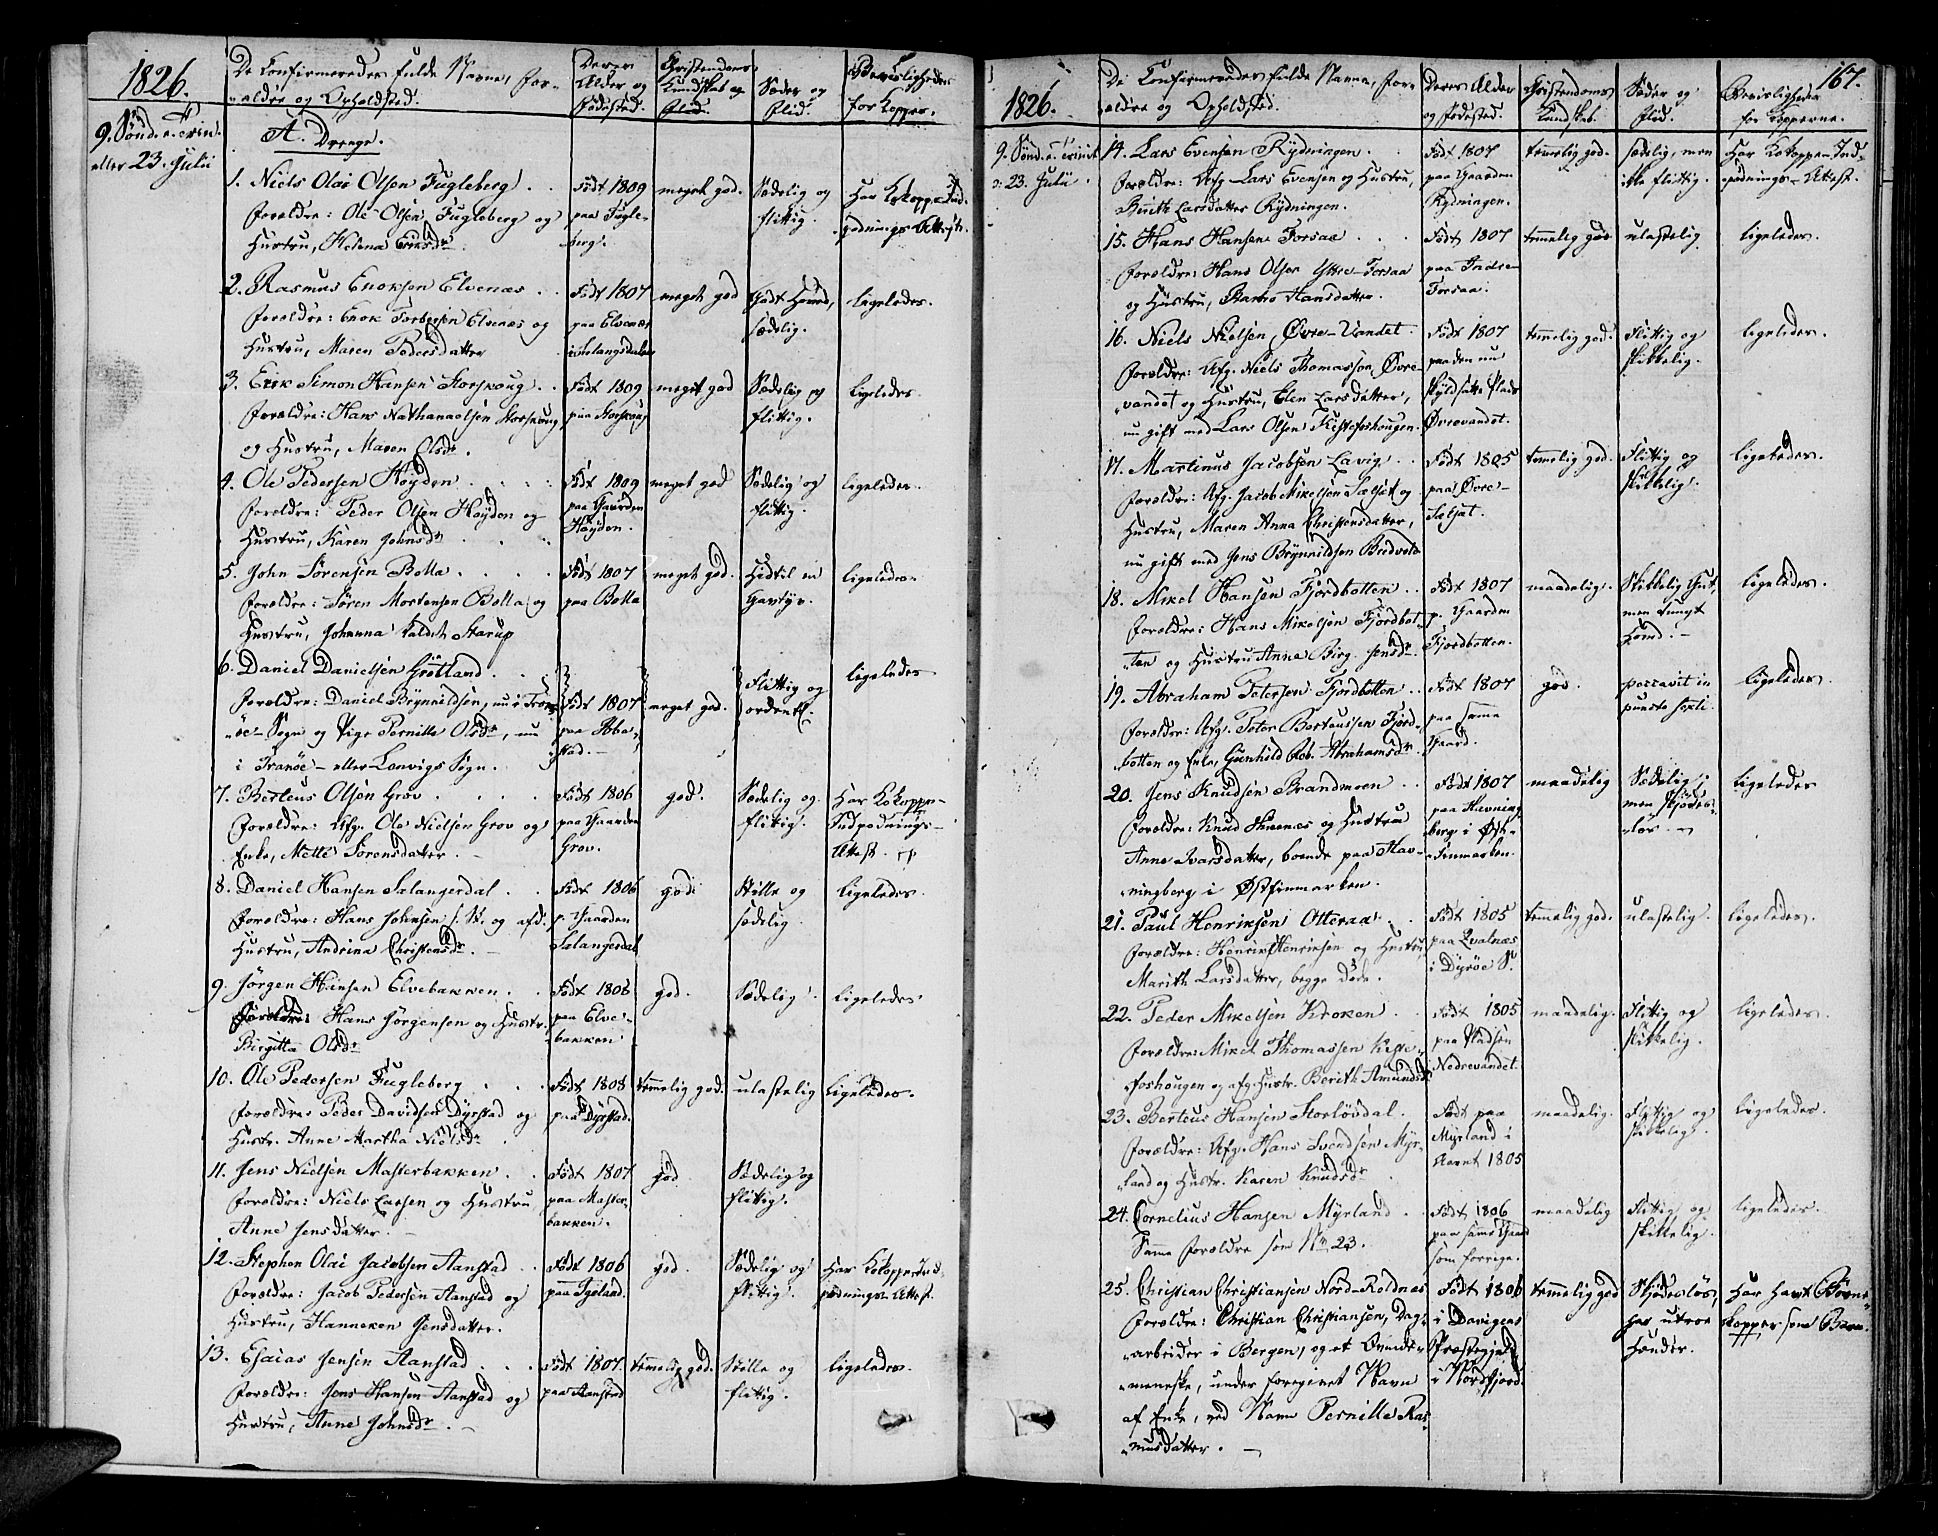 1826.
De Confirmeredes fulde Navne, For-
ældre og Opholdsted.
Deres
Alder og
Fødested.
Christendoms
Kundskab og
Flid.
Sæder og
Flid.
Beviisligheder
for Kopper.
9. Sønd. e. Trin.
eller 23. Julii
A. Drenge.
1. Niels Olai Olsen Fugleberg . .
Forældre: Ole Olsen Fugleberg og
Hustru, Helena Eriksdr.
Født 1809
paa Fugle-
berg.
meget god.
Sædelig og
flittig.
Har Kokoppe-Ind-
podnings Attest.
2. Rasmus Enoksen Elvenæs . .
Forældre: Enok Torbersen Elvenæs og
Hustru, Maren Pedersdatter
Født 1807
paa Elvenæs
i Salangsdalen
meget god
Godt Hoved,
sædelig.
ligeledes.
3. Erik Simon Hansen Storskoug . .
Forældre: Hans Nathanaelsen Storskoug
og Hustru, Maren Olsdr.
Født 1809
paa Storskoug
meget god
Sædelig og
flittig.
ligeledes.
4. Ole Pedersen Høyden . . . .
Forældre: Peder Olsen Høyden og
Hustru, Karen Johnsdr . . .
Født 1809
paa Gaarden
Høyden.
meget god
Sædelig og
flittig.
ligeledes.
5. John Sørensen Bolla . . . .
Forældre: Søren Mortensen Bolla og
Hustru, Johanna kaldet Starup
Født 1807
paa Bolla
meget god.
Hidtil en
Gavtyv.
ligeledes.
6. Daniel Danielsen Grøtland . .
Forældre: Daniel Brynnildsen, nu i Trom-
"søe-Sogn og Pige Pernille Olsdr, nu
i Tranøe- eller Lenvigs Sogn.
Født 1807
paa Ibbe-
stad.
meget god.
Flittig og
ordentl.
ligeledes
7. Berteus Olsen Grov . . . .
Forældre: Afg. Ole Nielsen Grov og
Enke, Mette Sørensdatter.
Født 1806
paa Gaarden
Grov.
god.
Sædelig og
flittig.
Har Kokoppe-
Indpodnings-
Attest.
8. Daniel Hansen Salangerdal . .
Forældre: Hans Johnsen s. St. og afd.
Hustru, Andrina Christensdr.
Født 1806
p. Gaarden
Salangerdal
god.
Stille og
sædelig
ligeledes.
9. Jørgen Hansen Elvebakken . .
Forældre: Hans Jørgensen og Hustr.
Birgitta Olsdr
Født 1808
paa Elve-
bakken
god.
Sædelig.
ligeledes.
10. Ole Pedersen Fugleberg . . .
Forældre: Peder Davidsen Dyrstad og
Hustr. Anne Martha Nielsdr
Født 1808
paa Dyrstad.
temmelig god.
ulastelig
ligeledes.
11. Jens Nielsen Masterbakken . .
Forældre: Niels Larsen og Hustru
Anne Jensdatter.
Født 1807
paa Master-
bakken.
god
Sædelig og
flittig.
12. Stephen Olai Jacobsen Aanstad . .
Forældre: Jacob Pedersen Aanstad og
Hustru, Hanneken Jensdatter.
Født 1806
paa Igeland.
god.
Sædelig og
flittig.
Har Kokoppe-Ind-
podnings-Attest.
13. Esaias Jensen Aanstad . . .
Forældre: Jens Hansen Aanstad og
Hustru, Anne Johnsdr.
Født 1807.
paa Aanstad
temmelig god.
Stille og
flittig.
ligeledes.
167.
1826.
De Confirmeredes fulde Navne, For-
ældre og Opholdsted.
Deres Alder
og Fødested.
Christendoms
Kundskab.
Sæder og
Flid.
Beviisligheder
for Kopperne.
9. Sønd. e. Trinit.
: 23. Julii.
14. Lars Evensen Rydningen . .
Forældre: Afg. Lars Evensen og Hustru,
Berith Larsdatter Rydningen.
Født 1807
paa Gaarden
Rydningen.
temmelig god.
sædelig, men
ikke flittig.
Har Kokoppe-Ind-
podnings-Attest.
15. Hans Hansen Forsaa . . .
Forældre: Hans Olsen Yttre-Forsaa
og Hustru, Barbro Hansdatter.
Født 1807
paa Indre-
Forsaa.
temmelig god
ulastelig
ligeledes.
16. Niels Nielsen Øvre-Vandet.
Forældre: Afg. Niels Thomassen Øvre-
"vandet og Hustru, Elen Larsdatter,
nu gift med Lars Olsen Kistefoshougen.
Født 1807
paa den nu
skyldsatte Plads
Øvrevandet.
temmelig god.
Flittig og
skikkelig.
ligeledes.
17. Martinus Jacobsen Lavig . .
Forældre: Afg. Jacob Mikelsen Sælset og
Hustru, Maren Anna Christensdatter,
nu gift med Jens Brynnildsen Bredvold
Født 1805
paa Øvre-
Sælset.
temmelig god.
Flittig og
skikkelig.
ligeledes.
18. Mikel Hansen Fjordbotten . .
Forældre: Hans Mikelsen Fjordbot-
"ten og Hustru Anna Birg. Jensdr.
Født 1807
p. Gaarden
Fjordbotten.
maadelig.
Skikkelig Gut,
men tungt
Hoved.
ligeledes.
19. Abraham Petersen Fjordbotten . .
Forældre: Afg. Peter Berteussen Fjord-
"botten og Enke, Gunhild Reb. Abrahamsdr.
Født 1807
paa samme
Gaard.
god.
peccavit in
puncto sexti.
ligeledes.
20. Jens Knudsen Brandmoen . .
Forældre: Knud Knænæs og Hustru
Anne Ivarsdatter, boende paa Hav-
"ningberg i Østfinmarken.
Født 1807
paa Havning-
berg i Øst-
Finmarken.
maadelig
Sædelig,
men skjødes-
løs.
ligeledes
21. Paul Henriksen Otteraa . .
Forældre: Henrik Henriksen og Hustru
Marith Larsdatter, begge døde.
Født 1805
paa Qvalnæs
i Dyrøe S.
temmelig god.
ulastelig.
ligeledes.
22. Peder Mikelsen Kroken . .
Forældre: Mikel Thomassen Kiste-
"foshougen og afg. Hustr. Berith Amundsdr
Født 1805
paa Pladsen
Nedrevandet.
maadelig.
Flittig og
skikkelig.
ligeledes.
23. Berteus Hansen Storløvdal.
Forældre: Afg. Hans Svendsen Myr-
"land og Hustr. Karen Knudsdr.
Født paa
Myrland i
Aaret 1805
maadelig.
Flittig og
skikkelig.
ligeledes.
24. Cornelius Hansen Myrland . .
Samme Forældre som No 23.
Født 1806
paa samme Gaard
som forrige.
maadelig
Flittig og
skikkelig.
ligeledes.
25. Christian Christiansen Nord-Roldnæs
Forældre: Christian Christiansen, Dag-
"arbeider i Bergen, og et Qvinde-
"menneske, under foregivet Navn
af Enke, ved Navn Pernille Ras-
"musdatter.
Født 1806
i Davigens
Præstegjeld
i Nordfjord.
temmelig god
Skjødesløs,
har utroe
Hænder.
Har havt Børne-
kopper som Barn.